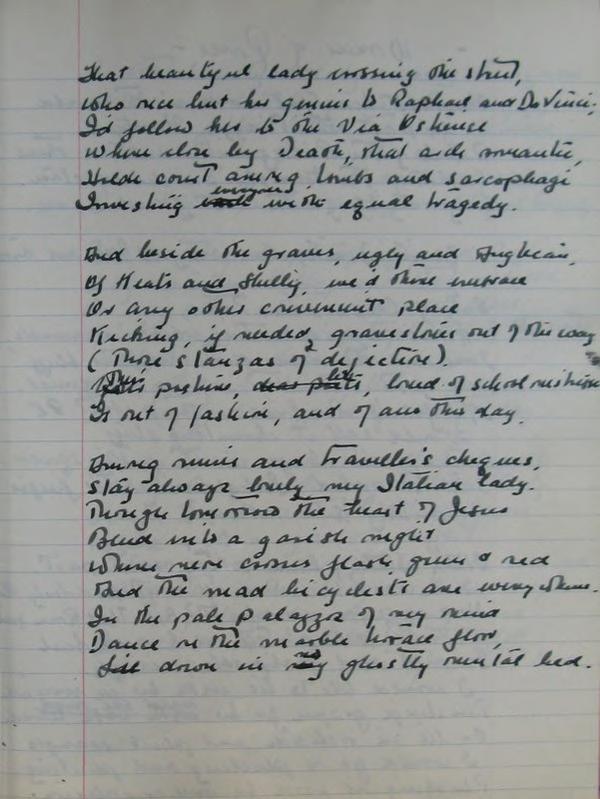 That beautiful lady crossing the street,
who nice but her genius to Raphael and Da Vinci,
I'd follow her to the Via Ostense
Where close by Death, that arch romantic,
Holds court among tombs and sarcophagi
Investing everyone with equal tragedy.
And beside the graves, ugly and Anglican,
Of Keats and Shelly, we'd there embrace
Or any other convenient place
Kicking, if needed, gravestones out of the way
(Those stanzas of dejection).
This pastime, like, loved of school
Is out of fashion, and of and this day.
Among ruins and traveller's cheques,
Stay always lovely my Italian lady.
Though tomorrow the heart of Jesus
Bleed into a garish night
Where neon crosses flash green & red
And the mad bicyclists are everywhere.
In the pale palazzos of my mind
Dance on the marble terrace floor,
Lie down in my ghostly mental bed.